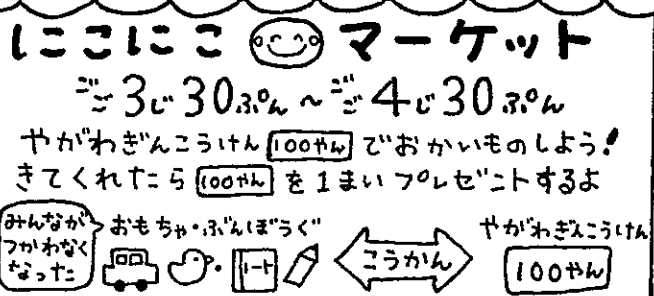 にこにこ マーケット
ごご3じ30ぷん～ごご4じ30ぷん
やがわぎんこうけん 100やん でおかいものしよう!
きてくれたら 100やん を1まいプレゼントするよ
みんなが
つかわなく
なった
おもちゃ・ぶんぼうぐ
ノート
こうかん
やがわぎんこうけん
100やん